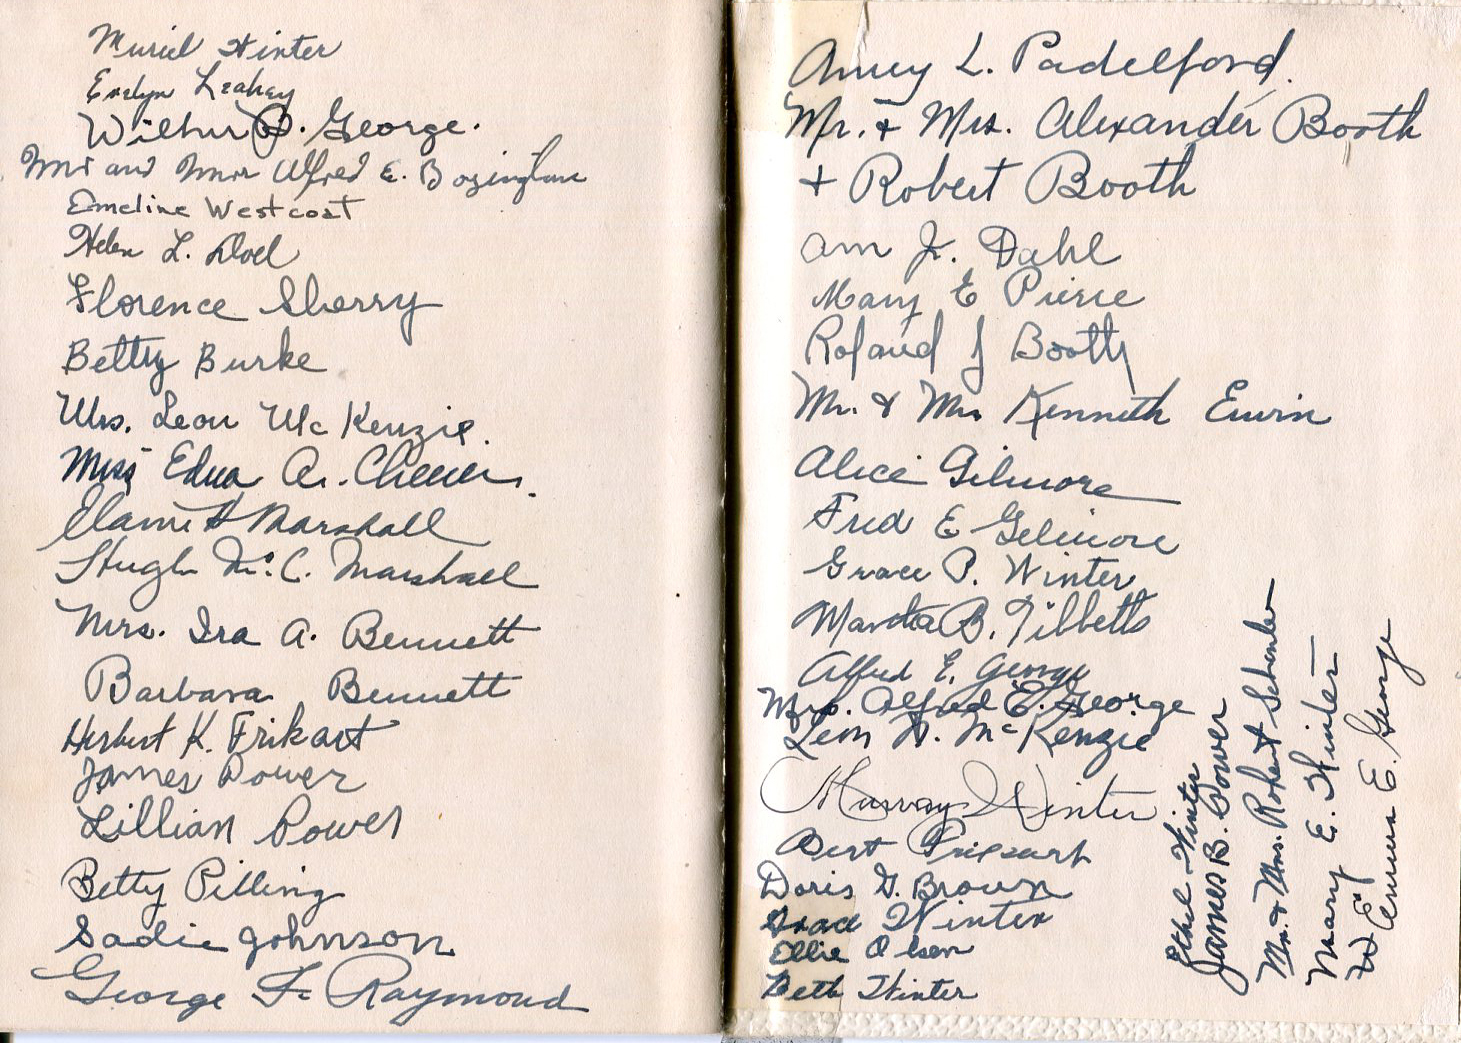 Muriel Winter
Evelyn Leahey
Wilbur B. George.
Mr and Mrs Alfred E. Bozington
Emeline Westcoat
Helen L. Doel
Florence Sherry
Betty Burke
Mrs. Leon McKenzie.
Miss Edna A.
Elaine H Marshall
Hugh Mc.C. Marshall
Mrs. Ira A. Bennett
Barbara Bennett
Herbert K. Frikart
James Power
Lillian Power
Betty Pilling
Sadie Johnson
George F. Raymond
L. Padelford.
Mr. + Mrs. Alexander Booth
+ Robert Booth
Dahl
Mary E Pierce
Roland J Booth
Mr. & Mrs Kenneth Erwin
Alice Gilmore
Fred E Gilmore
Grace P. Winter
Martha B. Tibbetts
Alfred E. George
Mrs. Alfred E. George
Leon A. McKenzie
Murray Winter
Bert
Doris G. Brown
Grace Winter
Ellie Olsen
Beth Winter
Ethel Winter
James B. Power
Mr. & Mrs. Robert
Mary E. Winter
Emma E. George